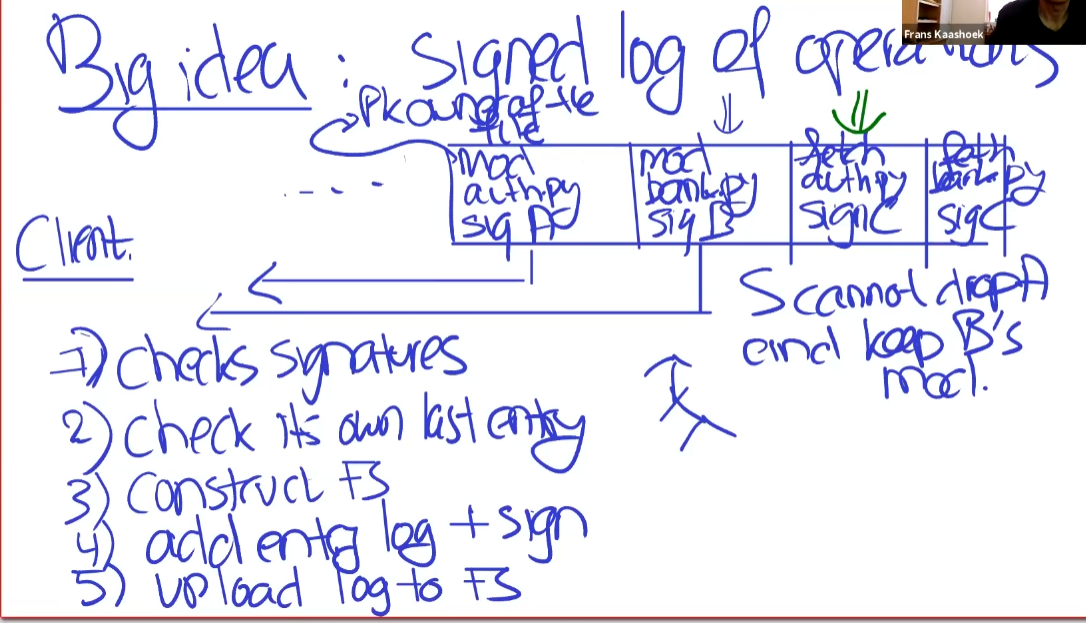 Frans Kaashoek
Big idea : Signed log of operations
PK owner of the
file
mod
auth.py
sig A
mod
bank.py
sig B
fetch
auth.py
sign C
bank.py
sig C
Client.
S cannot drop A
and keep B's
mod.
1) checks signatures
2) check its own last entry
3) construct FS
4) add entry log + sign
5) upload log to FS